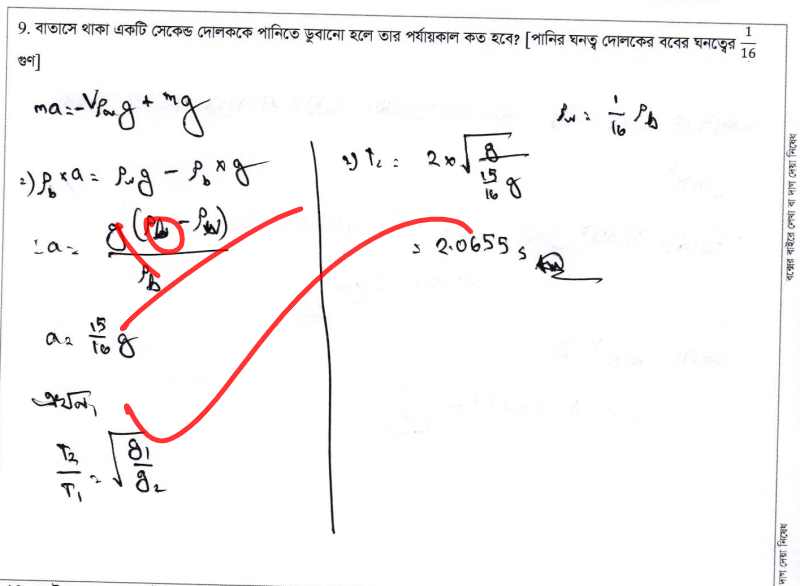 9. বাতাসে থাকা একটি সেকেন্ড দোলককে পানিতে ডুবানো হলে তার পর্যায়কাল কত হবে? [পানির ঘনত্ব দোলকের ববের ঘনত্বের 1/16
গুণ]
ma = -Vρ_w g + mg
ρ_w = 1/16 ρ_b
ρ_b × a = ρ_w g - ρ_b × g
∴ a = g(ρ_b - ρ_w)/ρ_b
a = 15/16 g
এখন,
T₂/T₁ = √(g₁/g₂)
T₂ = 2 × √(g/(15/16 g))
= 2.0655 s
বক্সের বাইরে লেখা বা দাগ দেয়া নিষেধ
দাগ দেয়া নিষেধ